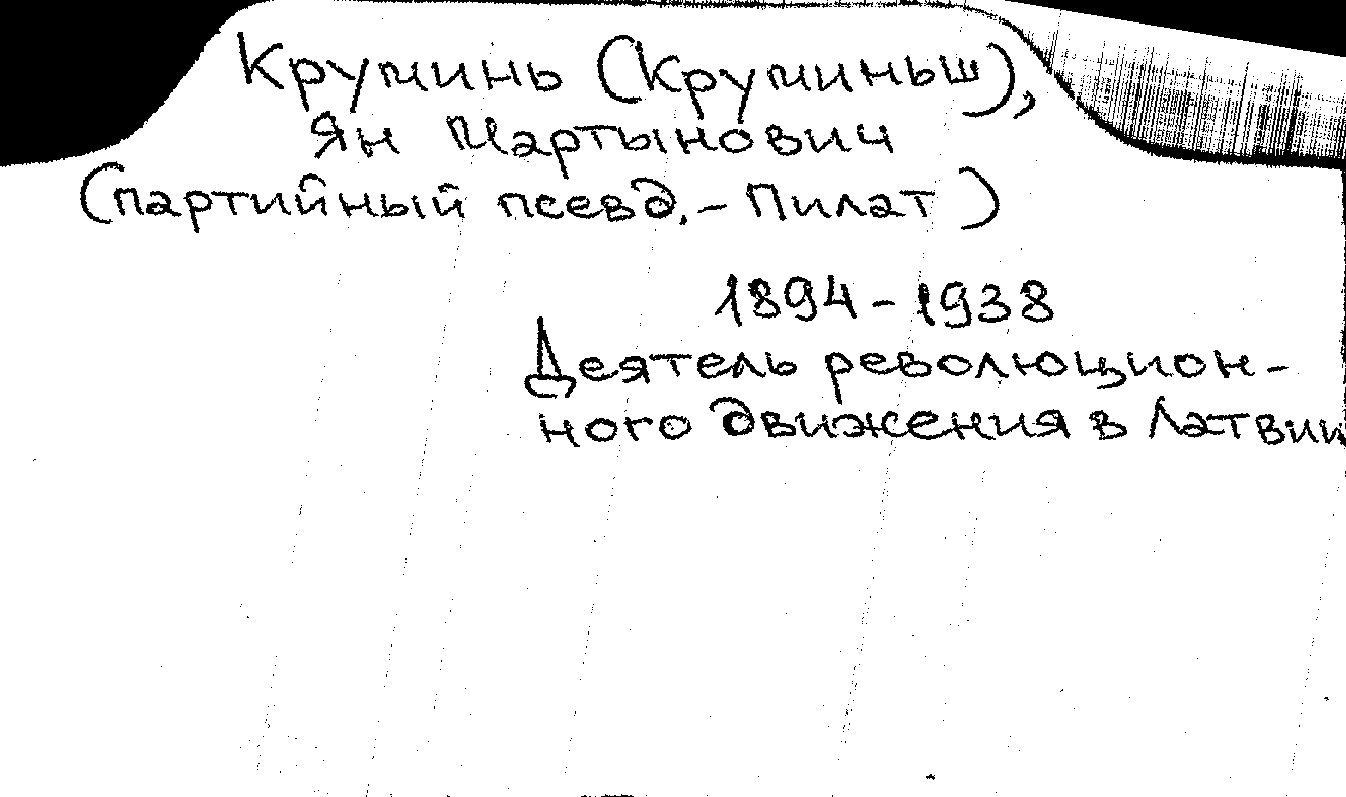 Круминь (Круминьш),
Ян Мартынович
(партийный псевд.- Пилат)
1894-1938
Деятель революцион-
ного движения в Латвии